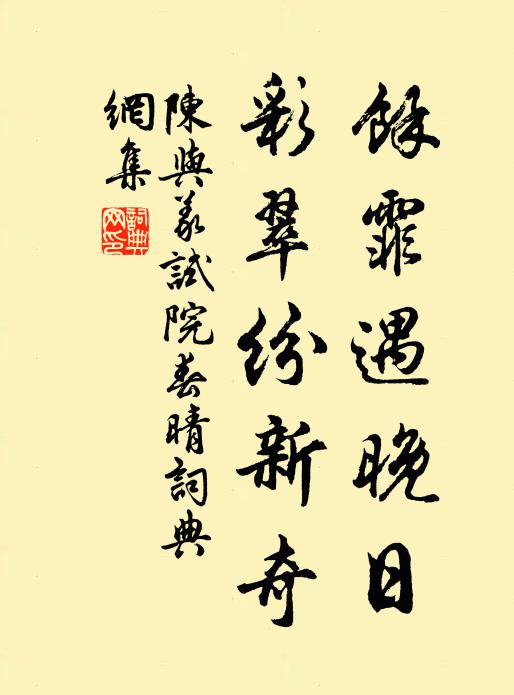 餘霏遇晚日
彩翠紛新奇
陳與義試院春晴詞典
網集
詞典網印